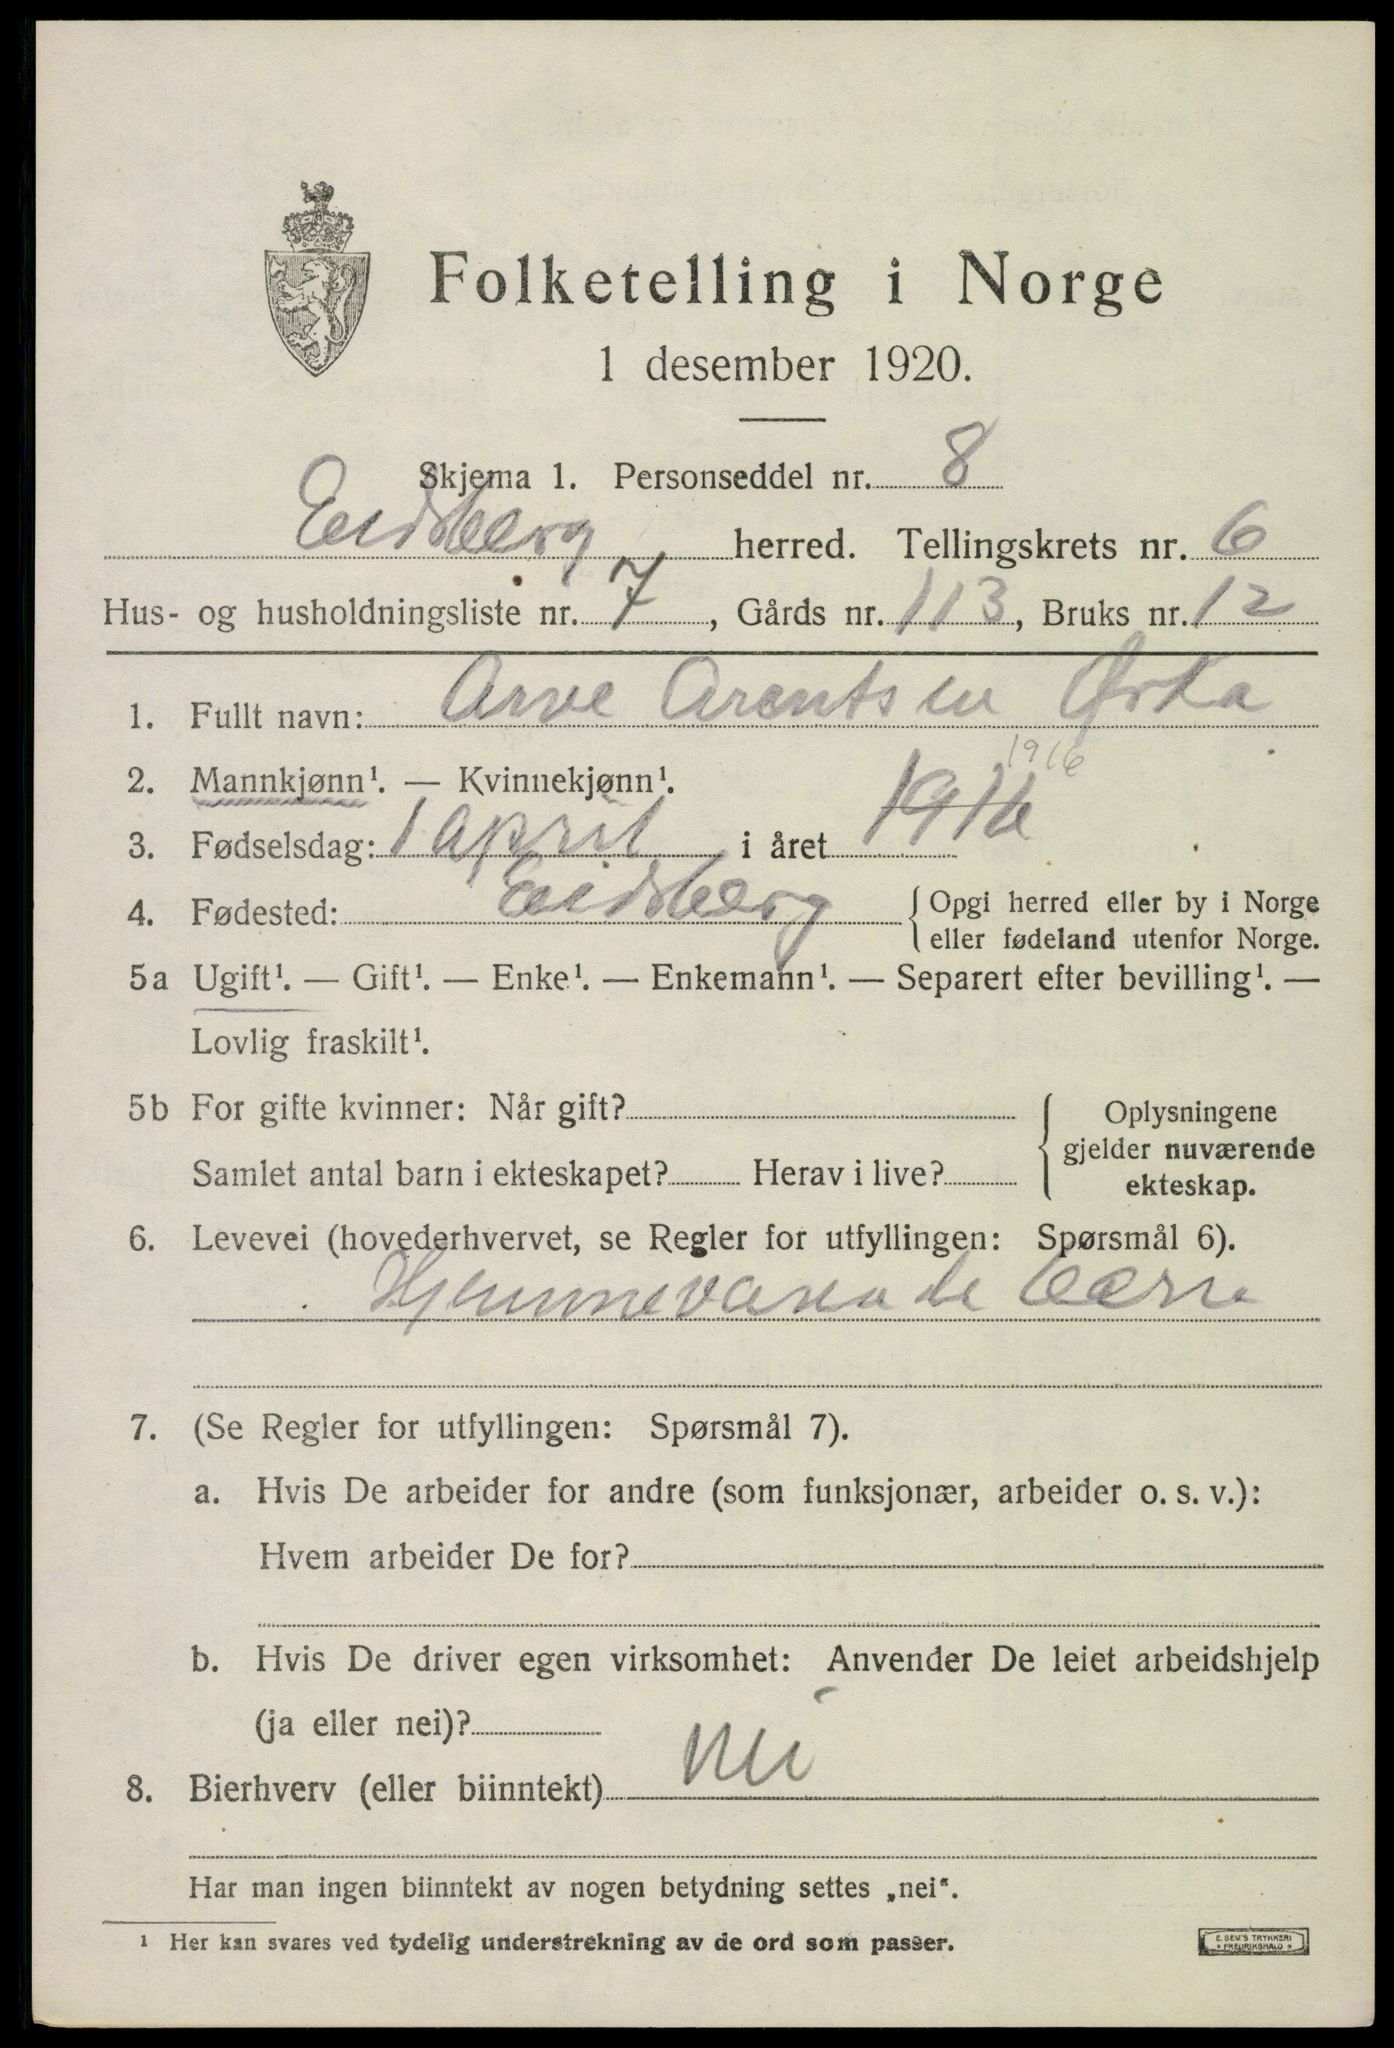 Folketelling i Norge
1 desember 1920.
Skjema 1. Personseddel nr. 8
Eidsberg herred. Tellingskrets nr. 6
Hus- og husholdningsliste nr. 7, Gårds nr. 113, Bruks nr. 12
1. Fullt navn: Arve Arentsen Ørka
1916
2. Mannkjønn¹. — Kvinnekjønn¹.
3. Fødselsdag: 1 april i året 1916
4. Fødested: Eidsberg { Opgi herred eller by i Norge
eller fødeland utenfor Norge.
5a Ugift¹. — Gift¹. — Enke¹. — Enkemann¹. — Separert efter bevilling¹. —
Lovlig fraskilt¹.
5b For gifte kvinner: Når gift? { Oplysningene
gjelder nuværende
Samlet antal barn i ekteskapet? Herav i live? ekteskap.
6. Levevei (hovederhvervet, se Regler for utfyllingen: Spørsmål 6).
Hjemmeværende
7. (Se Regler for utfyllingen: Spørsmål 7).
a. Hvis De arbeider for andre (som funksjonær, arbeider o. s. v.):
Hvem arbeider De for?
b. Hvis De driver egen virksomhet: Anvender De leiet arbeidshjelp
(ja eller nei)?
8. Bierhverv (eller biinntekt) nei
Har man ingen biinntekt av nogen betydning settes „nei“.
¹ Her kan svares ved tydelig understrekning av de ord som passer.
E. SEM'S TRYKKERI
* FREDRIKSHALD *